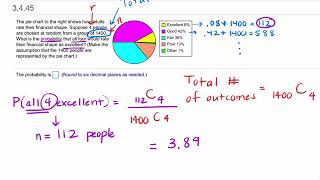 3.4.45
The pie chart to the right shows how adults
rate their financial shape. Suppose 4 people
are chosen at random from a group of 1400.
What is the probability that all four would rate
their financial shape as excellent? (Make the
assumption that the 1400 people are
represented by the pie chart.)
Excellent 8%
Good 42%
Fair 36%
Poor 13%
Other 1%
.08 * 1400 = 112
.42 * 1400 = 588
The probability is (Round to six decimal places as needed.)
P(all 4 excellent) = 112 C 4 / 1400 C 4
Total # of outcomes = 1400 C 4
n = 112 people
= 3.89